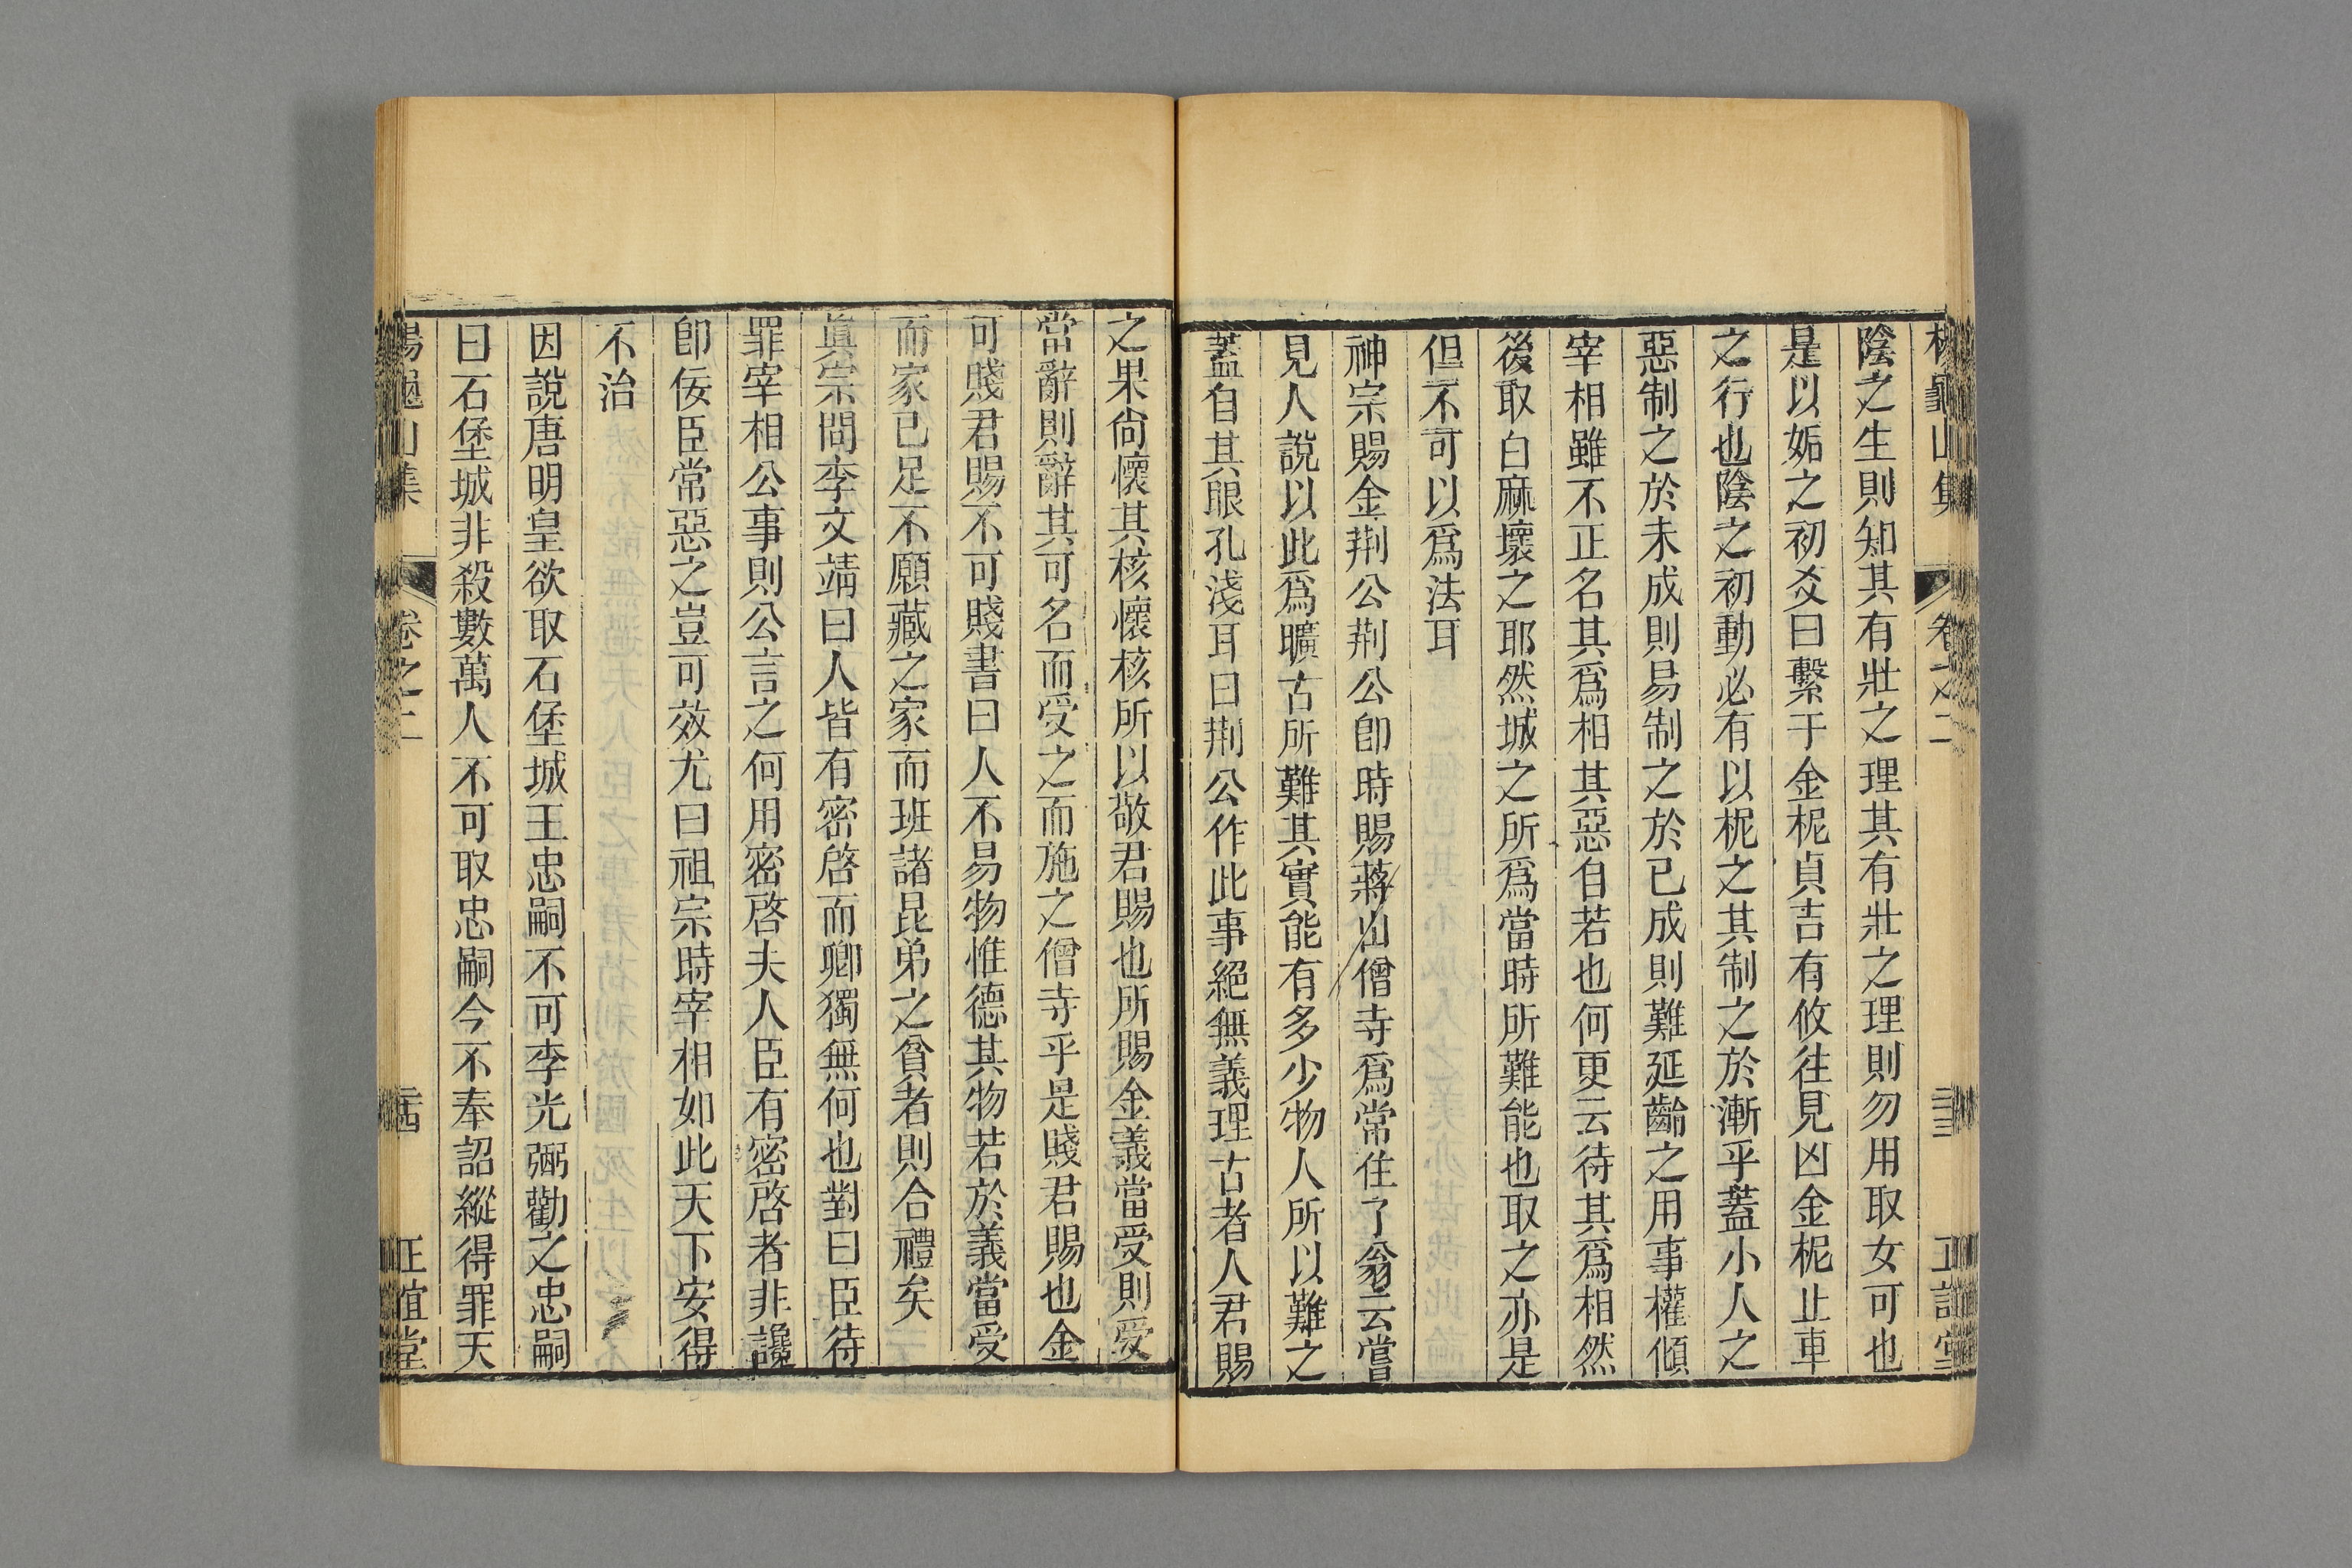 楊龜山集 卷之二 三十三 正誼堂
陰之生則知其有壯之理其有壯之理則勿用取女可也
是以姤之初爻曰繫于金柅貞吉有攸往見凶金柅止車
之行也陰之初動必有以柅之其制之於漸乎蓋小人之
惡制之於未成則易制之於已成則難延齡之用事權傾
宰相雖不正名其爲相其惡自若也何更云待其爲相然
後取白麻壞之耶然城之所爲當時所難能也取之亦是
但不可以爲法耳
神宗賜金荆公荆公卽時賜蔣山僧寺爲常住了翁云嘗
見人說以此爲曠古所難其實能有多少物人所以難之
蓋自其眼孔淺耳曰荆公作此事絕無義理古者人君賜
之果尙懷其核懷核所以敬君賜也所賜金義當受則受
當辭則辭其可名而受之而施之僧寺乎是賤君賜也金
可賤君賜不可賤書曰人不易物惟德其物若於義當受
而家已足不願藏之家而班諸昆弟之貧者則合禮矣
眞宗問李文靖曰人皆有密啓而卿獨無何也對曰臣待
罪宰相公事則公言之何用密啓夫人臣有密啓者非讒
卽佞臣常惡之豈可效尤曰祖宗時宰相如此天下安得
不治
因說唐明皇欲取石堡城王忠嗣不可李光弼勸之忠嗣
曰石堡城非殺數萬人不可取忠嗣今不奉詔縱得罪天
楊龜山集 卷之二 三十四 正誼堂